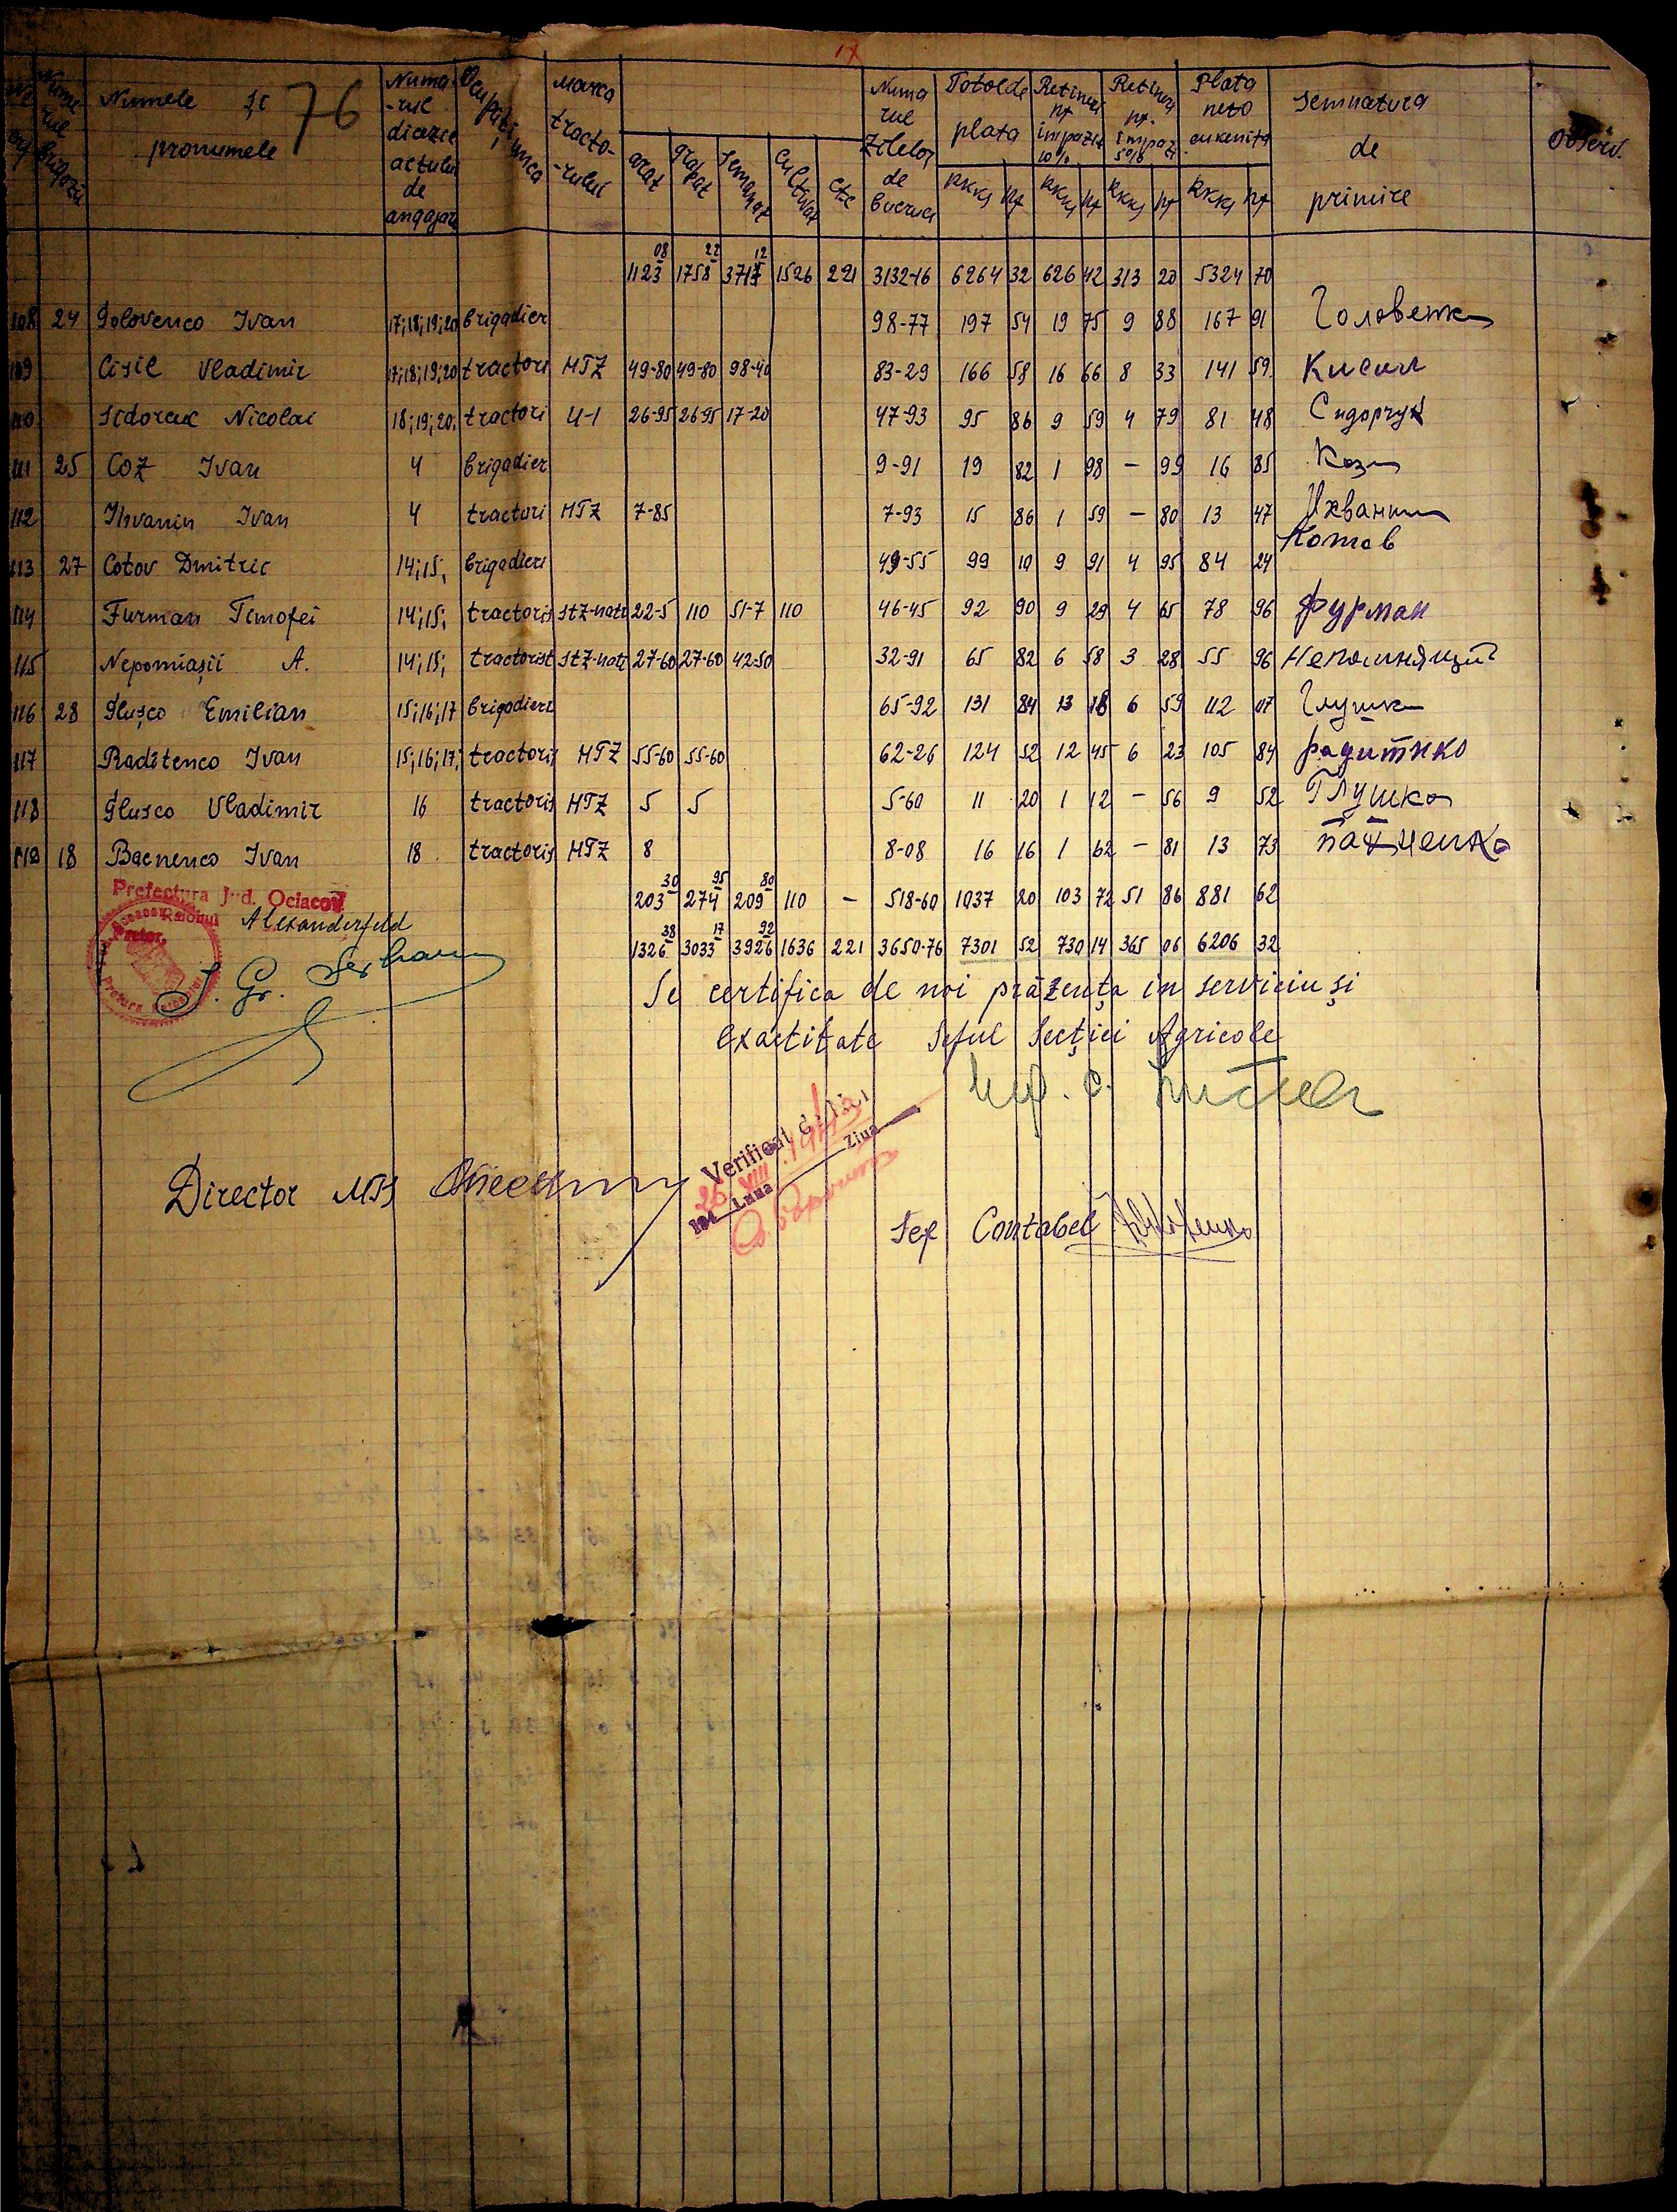 76
Numele și pronumele
Numa-rul
de
angajare
Ocupațiunea
Marca tracto-rului
arat grapat semanat cultivat etc
Numa rul Zilelor de
Total de plata
Retineri pt impozit 10%
Retineri pt. impozit 5%
Plata neto
semnatura de primire
Observ.
RKKS pf RKKS pf RKKS pf RKKS pf
1123 08 1758 22 3717 12 1526 221 3132-16 6264 32 626 42 313 20 5324 70
108 24 Golovenco Ivan 17;18;19;20 brigadier 98-77 197 54 19 75 9 88 167 91 Головенк
109 Cisil Vladimir 17;18;19;20 tractori HTZ 49-80 49-80 98-40 83-29 166 58 16 66 8 33 141 59 Кисил
110 Sidorcuc Nicolai 18;19;20; tractori U-1 26-95 26-95 17-20 47-93 95 86 9 59 4 79 81 48 Сидорчук
111 25 Coz Ivan 4 brigadier 9-91 19 82 1 98 – 99 16 85 Коз
112 Ihvanin Ivan 4 tractori HTZ 7-85 7-93 15 86 1 59 – 80 13 47 Ихванин
113 27 Cotov Dmitric 14;15; brigadieri 49-55 99 10 9 91 4 95 84 24 Котов
114 Furman Timofei 14;15; tractoris StZ-nati 22-5 110 51-7 110 46-45 92 90 9 29 4 65 78 96 Фурман
115 Nepomiașii A. 14;15; tractorist StZ-nati 27-60 27-60 42-50 32-91 65 82 6 58 3 28 55 96 Непомнящий
116 28 Glușco Emilian 15;16;17 brigadieri 65-92 131 84 13 18 6 59 112 07 Глушко
117 Raditenco Ivan 15;16;17; tractoris HTZ 55-60 55-60 62-26 124 52 12 45 6 23 105 84 радитнко
118 Glusco Vladimir 16 tractoris HTZ 5 5 5-60 11 20 1 12 – 56 9 52 Глушко
119 18 Bacnenco Ivan 18 tractoris HTZ 8 8-08 16 16 1 62 – 81 13 73
203 30 274 95 209 80 110 – 518-60 1037 20 103 72 51 86 881 62
1326 38 3033 17 3926 92 1636 221 3650-76 7301 52 730 14 365 06 6206 32
Prefectura Jud. Ociacov
Alexanderfeld
Se certifica de noi prăzența in serviciu și
exactitate Seful Secției Agricole
Verificat
Luna Ziua
Director MTS
Sef Contabil